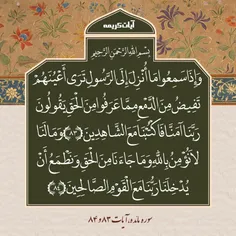 آیات کریمه
بِسْمِ اللهِ الرَّحْمنِ الرَّحیمِ
وَإِذَا سَمِعُوا مَا أُنْزِلَ إِلَى الرَّسُولِ تَرَى أَعْيُنَهُمْ
تَفِيضُ مِنَ الدَّمْعِ مِمَّا عَرَفُوا مِنَ الْحَقِّ يَقُولُونَ
رَبَّنَا آمَنَّا فَاكْتُبْنَا مَعَ الشَّاهِدِينَ ﴿۸۳﴾ وَمَا لَنَا
لَا نُؤْمِنُ بِاللَّهِ وَمَا جَاءَنَا مِنَ الْحَقِّ وَنَطْمَعُ أَنْ
يُدْخِلَنَا رَبُّنَا مَعَ الْقَوْمِ الصَّالِحِينَ ﴿۸۴﴾
سوره مائده: آیات ۸۳ و ۸۴